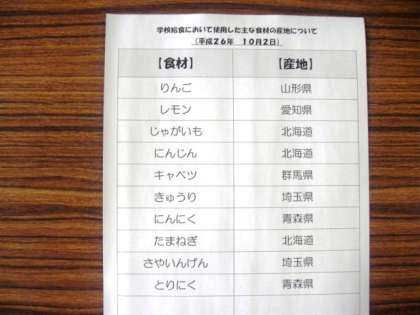 学校給食において使用した主な食材の産地について
(平成26年 10月2日)
【食材】 【産地】
りんご 山形県
レモン 愛知県
じゃがいも 北海道
にんじん 北海道
キャベツ 群馬県
きゅうり 埼玉県
にんにく 青森県
たまねぎ 北海道
さやいんげん 埼玉県
とりにく 青森県